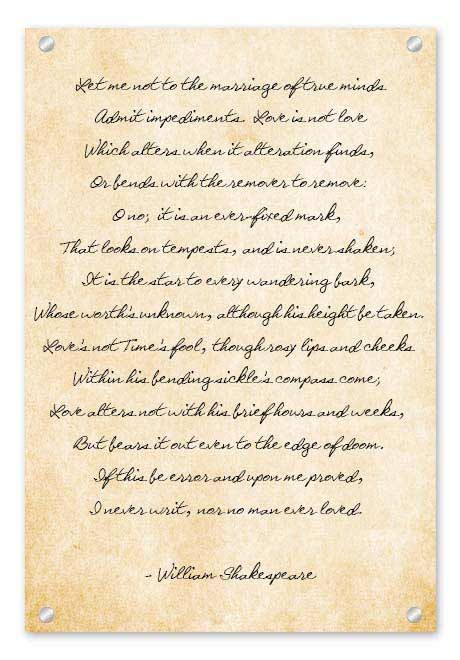 Let me not to the marriage of true minds
Admit impediments. Love is not love
Which alters when it alteration finds,
Or bends with the remover to remove:
O no; it is an ever-fixed mark,
That looks on tempests, and is never shaken;
It is the star to every wandering bark,
Whose worth's unknown, although his height be taken.
Love's not Time's fool, though rosy lips and cheeks
Within his bending sickle's compass come;
Love alters not with his brief hours and weeks,
But bears it out even to the edge of doom.
If this be error and upon me proved,
I never writ, nor no man ever loved.
- William Shakespeare